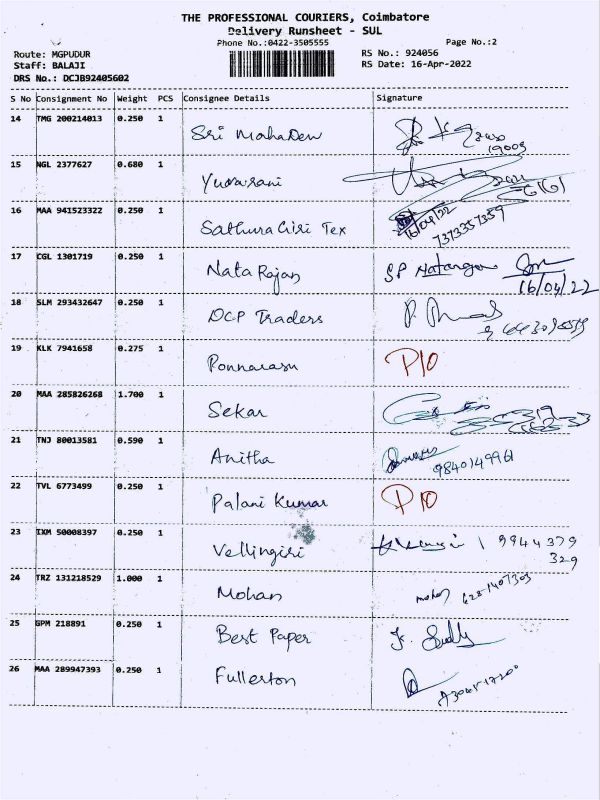 THE PROFESSIONAL COURIERS, Coimbatore
Delivery Runsheet - SUL
Phone No.:0422-3505555 Page No.:2
Route: MGPUDUR RS No.: 924056
Staff: BALAJI RS Date: 16-Apr-2022
DRS No.: DCJB92405602
S No Consignment No Weight PCS Consignee Details Signature
14 TMG 200214013 0.250 1 Sri Mahadev
15 NGL 2377627 0.680 1 Yuvarani
16 MAA 941523322 0.250 1 Sathura Giri Tex 16/04/22
7373357359
17 CGL 1301719 0.250 1 Nata Rajan SP Natarajan
16/04/22
18 SLM 293432647 0.250 1 DCP Traders
19 KLK 7941658 0.275 1 Ponnarasu P10
20 MAA 285826268 1.700 1 Sekar
21 TNJ 80013581 0.590 1 Anitha 9840149961
22 TVL 6773499 0.250 1 Palani Kumar P10
23 IXM 50008397 0.250 1 Vellingiri 9944379
329
24 TRZ 131218529 1.000 1 Mohan mohan
25 GPM 218891 0.250 1 Best Paper
26 MAA 289947393 0.250 1 Fullerton